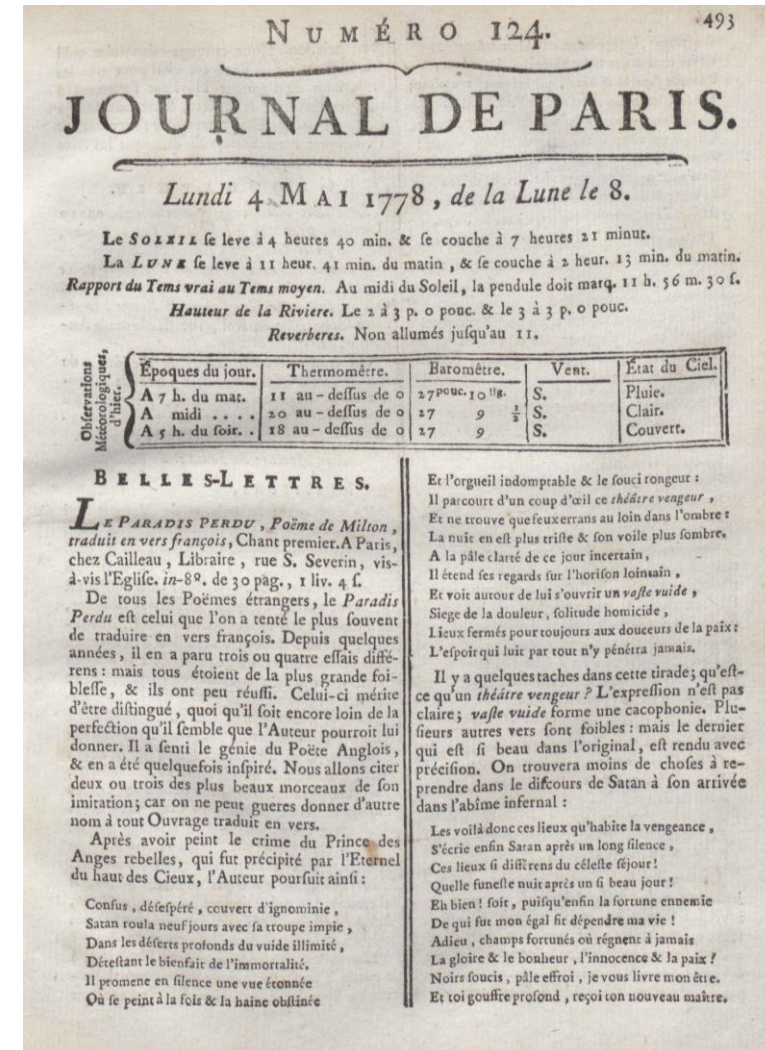 493
NUMÉRO 124.
JOURNAL DE PARIS.
Lundi 4 MAI 1778, de la Lune le 8.
Le SOLEIL ſe leve à 4 heures 40 min. & ſe couche à 7 heures 21 minut.
La LUNE ſe leve à 11 heur. 41 min. du matin, & ſe couche à 2 heur. 13 min. du matin.
Rapport du Tems vrai au Tems moyen. Au midi du Soleil, la pendule doit marq. 11 h. 56 m. 30 ſ.
Hauteur de la Riviere. Le 2 à 3 p. 0 pouc. & le 3 à 3 p. 0 pouc.
Reverberes. Non allumés juſqu'au 11.
Obſervations
Météorologiques,
d'hier.
Époques du jour. Thermomêtre. Baromêtre. Vent. État du Ciel.
A 7 h. du mat. 11 au-deſſus de 0 27 pouc. 10 lig. S. Pluie.
A midi .... 20 au-deſſus de 0 27 9 ½ S. Clair.
A 5 h. du ſoir. . 18 au-deſſus de 0 27 9 S. Couvert.
BELLES-LETTRES.
LE PARADIS PERDU, Poëme de Milton,
traduit en vers françois, Chant premier. A Paris,
chez Cailleau, Libraire, rue S. Severin, vis-
à-vis l'Egliſe. in-8º. de 30 pag., 1 liv. 4 ſ.
De tous les Poëmes étrangers, le Paradis
Perdu eſt celui que l'on a tenté le plus ſouvent
de traduire en vers françois. Depuis quelques
années, il en a paru trois ou quatre eſſais diffé-
rens : mais tous étoient de la plus grande foi-
bleſſe, & ils ont peu réuſſi. Celui-ci mérite
d'être diſtingué, quoi qu'il ſoit encore loin de la
perfection qu'il ſemble que l'Auteur pourroit lui
donner. Il a ſenti le génie du Poëte Anglois,
& en a été quelquefois inſpiré. Nous allons citer
deux ou trois des plus beaux morceaux de ſon
imitation; car on ne peut gueres donner d'autre
nom à tout Ouvrage traduit en vers.
Après avoir peint le crime du Prince des
Anges rebelles, qui fut précipité par l'Eternel
du haut des Cieux, l'Auteur pourſuit ainſi :
Confus, déſeſpéré, couvert d'ignominie,
Satan roula neuf jours avec ſa troupe impie,
Dans les déſerts profonds du vuide illimité,
Déteſtant le bienfait de l'immortalité.
Il promene en ſilence une vue étonnée
Où ſe peint à la fois & la haine obſtinée
Et l'orgueil indomptable & le ſouci rongeur :
Il parcourt d'un coup d'œil ce théâtre vengeur,
Et ne trouve que feux errans au loin dans l'ombre :
La nuit en eſt plus triſte & ſon voile plus ſombre.
A la pâle clarté de ce jour incertain,
Il étend ſes regards ſur l'horiſon lointain,
Et voit autour de lui s'ouvrir un vaſte vuide,
Siege de la douleur, ſolitude homicide,
Lieux fermés pour toujours aux douceurs de la paix :
L'eſpoir qui luit par tout n'y pénétra jamais.
Il y a quelques taches dans cette tirade; qu'eſt-
ce qu'un théâtre vengeur ? L'expreſſion n'eſt pas
claire; vaſte vuide forme une cacophonie. Plu-
ſieurs autres vers ſont foibles : mais le dernier
qui eſt ſi beau dans l'original, eſt rendu avec
préciſion. On trouvera moins de choſes à re-
prendre dans le diſcours de Satan à ſon arrivée
dans l'abîme infernal :
Les voilà donc ces lieux qu'habite la vengeance,
S'écrie enfin Satan après un long ſilence,
Ces lieux ſi différens du céleſte ſéjour !
Quelle funeſte nuit après un ſi beau jour !
Eh bien ! ſoit, puiſqu'enfin la fortune ennemie
De qui fut mon égal fit dépendre ma vie !
Adieu, champs fortunés où régnent à jamais
La gloire & le bonheur, l'innocence & la paix !
Noirs ſoucis, pâle effroi, je vous livre mon être.
Et toi gouffre profond, reçoi ton nouveau maître.